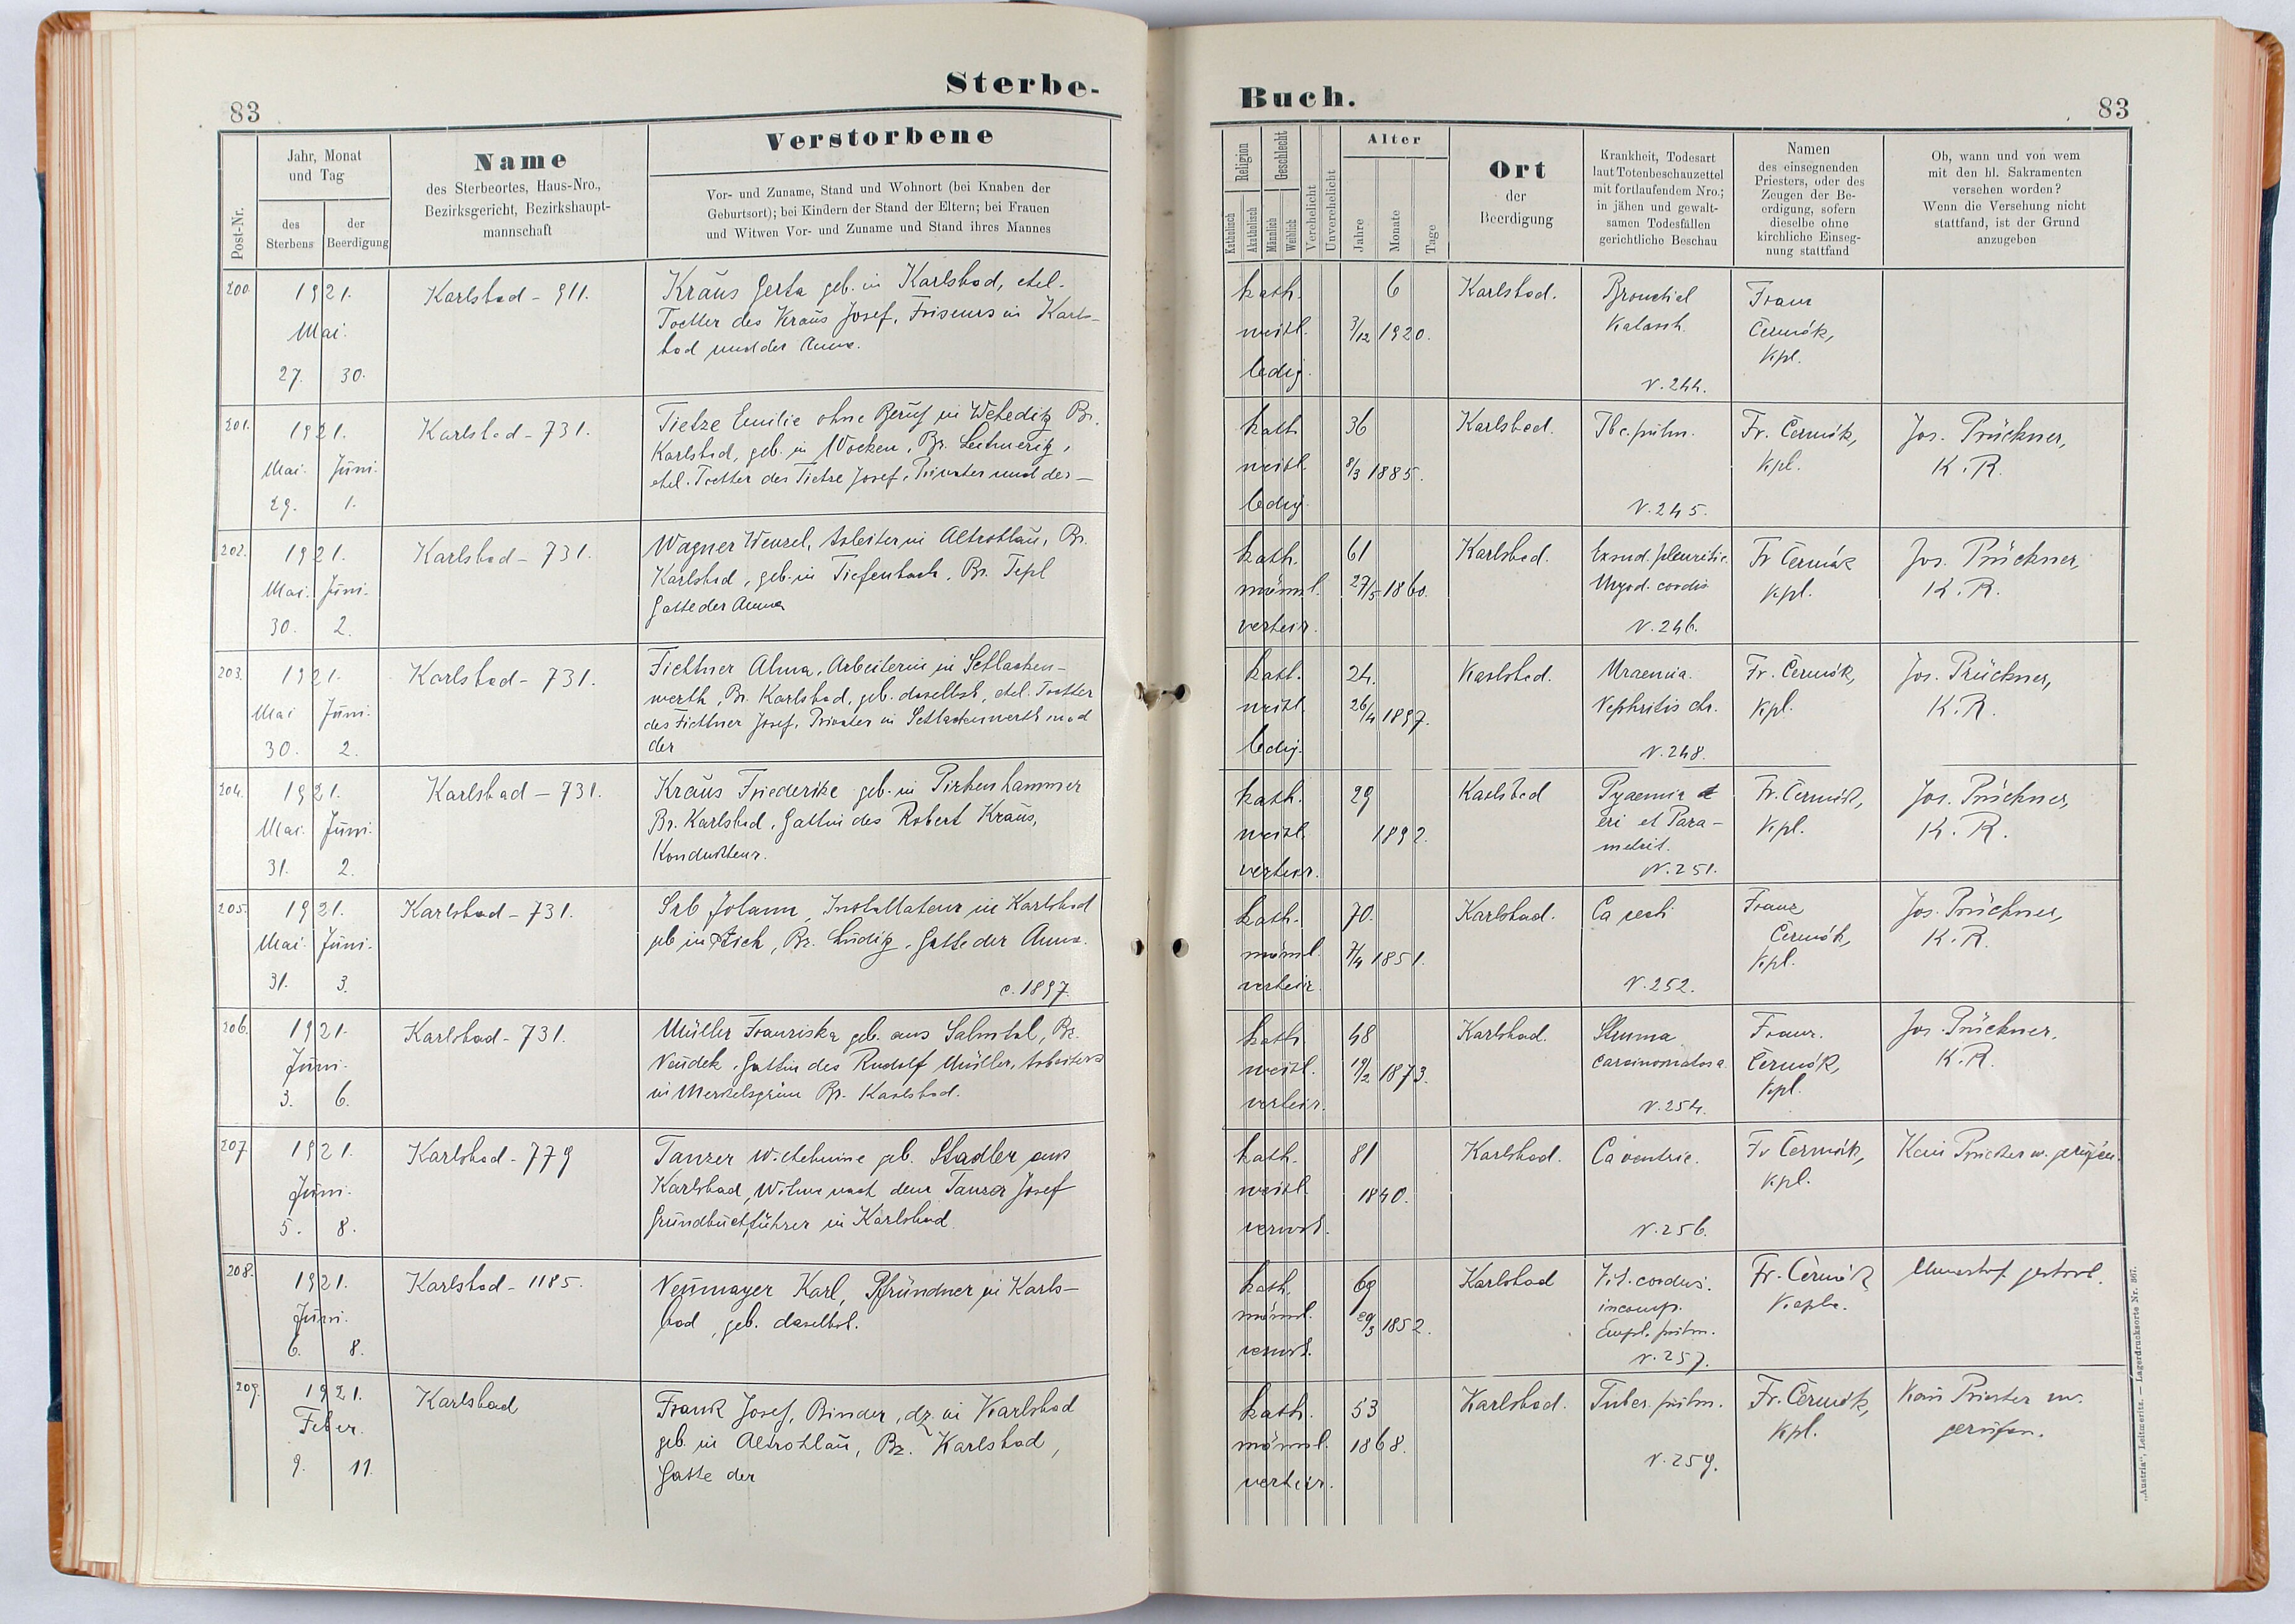 Sterbe-
83
Verstorbene
Post-Nr.
Jahr, Monat
und Tag
des
Sterbens
der
Beerdigung
Name
des Sterbeortes, Haus-Nro.,
Bezirksgericht, Bezirkshaupt-
mannschaft
Vor- und Zuname, Stand und Wohnort (bei Knaben der
Geburtsort); bei Kindern der Stand der Eltern; bei Frauen
und Witwen Vor- und Zuname und Stand ihres Mannes
200.
1921.
Mai.
27. 30.
Karlsbad - 911.
Kraus Gerta geb. in Karlsbad, ehel.
Tochter des Kraus Josef, Friseurs in Karls-
bad und der Anna.
201.
1921.
Mai. Juni.
29. 1.
Karlsbad - 731.
Tietze Emilie ohne Beruf in Weheditz Bz.
Karlsbad, geb. in Wocken, Bz. Leitmeritz,
ehel. Tochter des Tietze Josef, Privater und der -
202.
1921.
Mai. Juni.
30. 2.
Karlsbad - 731.
Wagner Wenzel, Arbeiter in Altrohlau, Bz.
Karlsbad, geb. in Tiefenbach, Bz. Tepl
Gatte der Anna
203.
1921.
Mai Juni.
30. 2.
Karlsbad - 731.
Fiethner Alma, Arbeiterin in Schlacken-
werth, Bz. Karlsbad, geb. daselbst, ehel. Tochter
des Fiethner Josef, Privater in Schlackenwerth und
der
204.
1921.
Mai. Juni.
31. 2.
Karlsbad - 731.
Kraus Friederike geb. in Pirkenhammer
Bz. Karlsbad, Gattin des Robert Kraus,
Kondukteur.
205.
1921.
Mai. Juni.
31. 3.
Karlsbad - 731.
Srb Johann, Installateur in Karlsbad
geb in Aich, Bz. Luditz, Gatte der Anna.
c. 1897.
206.
1921.
Juni.
3. 6.
Karlsbad - 731.
Müller Franziska geb. aus Salmtal, Bz.
Neudek, Gattin des Rudolf Müller, Arbeiters
in Merkelsgrün Bz. Karlsbad.
207.
1921.
Juni.
5. 8.
Karlsbad - 779
Tanzer Wilhelmine geb. Stadler aus
Karlsbad, Witwe nach dem Tanzer Josef
Grundbuchführer in Karlsbad.
208.
1921.
Juni.
6. 8.
Karlsbad - 1185.
Neumayer Karl, Pfründner in Karls-
bad, geb. daselbst.
209.
1921.
Feber.
9. 11.
Karlsbad
Frank Josef, Binder, dz. in Karlsbad
geb. in Altrohlau, Bz. Karlsbad,
Gatte der
Buch.
83
Religion
Katholisch
Akatholisch
Geschlecht
Männlich
Weiblich
Verehelicht
Unverehelicht
Alter
Jahre
Monate
Tage
Ort
der
Beerdigung
Krankheit, Todesart
laut Totenbeschauzettel
mit fortlaufendem Nro.;
in jähen und gewalt-
samen Todesfällen
gerichtliche Beschau
Namen
des einsegnenden
Priesters, oder des
Zeugen der Be-
erdigung, sofern
dieselbe ohne
kirchliche Einseg-
nung stattfand
Ob, wann und von wem
mit den hl. Sakramenten
versehen worden?
Wenn die Versehung nicht
stattfand, ist der Grund
anzugeben
kath.
weibl.
ledig.
6
3/12 1920.
Karlsbad.
Bronchial
Katarrh.
N. 244.
Franz
Čermák,
Kpl.
kath
weibl.
ledig
36
8/3 1885.
Karlsbad.
Tbc. pulm.
N. 245.
Fr. Čermák,
Kpl.
Jos. Prückner,
K. R.
kath.
männl.
verheir.
61
27/5 1860.
Karlsbad.
Exsud. pleuritic.
Myod. cordis
N. 246.
Fr Čermák
Kpl.
Jos. Prückner,
K. R.
kath.
weibl.
ledig.
24.
26/4 1897.
Karlsbad.
Uraemia.
Nephritis chr.
N. 248.
Fr. Čermák,
Kpl.
Jos. Prückner,
K. R.
kath.
weibl.
verheir.
29
1892.
Karlsbad
Pyaemia
eri et Para-
metrit.
N. 251.
Fr. Čermák,
Kpl.
Jos. Prückner,
K. R.
kath.
männl.
verheir.
70.
7/4 1851.
Karlsbad.
Ca recti
N. 252.
Franz
Čermák,
Kpl.
Jos. Prückner,
K. R.
kath.
weibl.
verheir.
48
19/2 1873.
Karlsbad.
Struma
carcinomatosa.
N. 254.
Franz.
Čermák,
Kpl.
Jos. Prückner,
K. R.
kath.
weibl.
verwit.
81
1840.
Karlsbad.
Ca ventric.
N. 256.
Fr Čermák,
Kpl.
Kein Priester w. gerufen.
kath.
männl.
verwit.
69
29/3 1852.
Karlsbad
Vit. cordis.
incomp.
Empl. pulm.
N. 257.
Fr. Čermák
Kapln.
kath.
männl.
verheir.
53
1868.
Karlsbad.
Tuber. pulm.
N. 259.
Fr. Čermák,
Kpl.
Kein Priester w.
gerufen.
„Austria“, Leitmeritz. — Lagerdrucksorte Nr. 867.